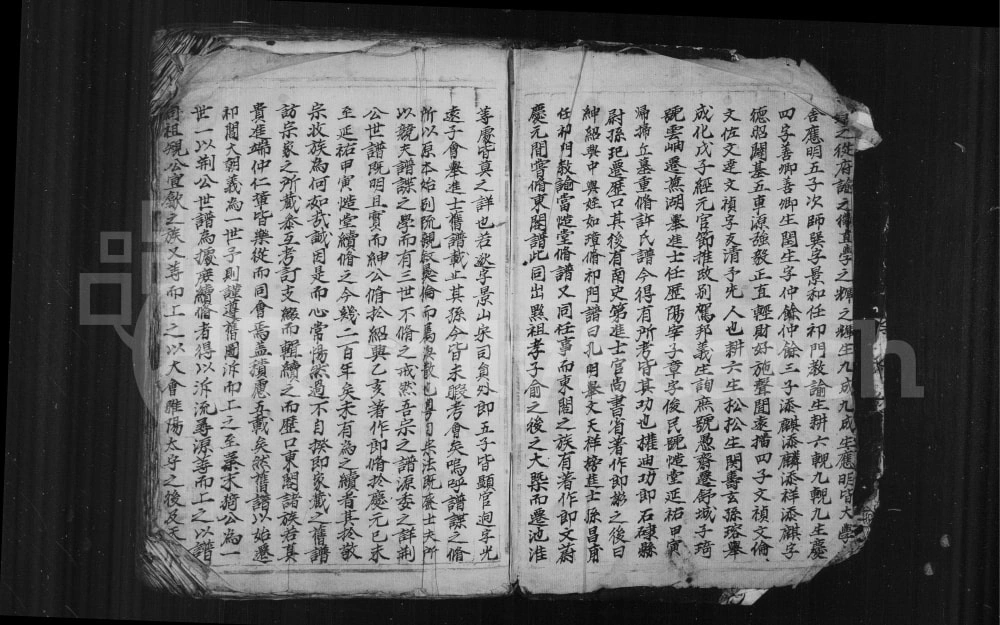 之從府誼之傳直學之輝之輝生九成九成生應明皆大學
舍應明五子次師巽字景和任祁門教諭生耕六軏九軏九生慶
四字善卿善卿生閏生字仲餘仲餘三子添麒添麟添祥添麒字
德昭闢基五東源強毅正直輕財好施聲聞遠播四子文禎文倫
文佐文達文禎字友清予先人也耕六生松松生関壽玄孫瑢舉
成化戊子經元官節推改別駕邦義生詢庶號愚齋遷舒城子琦
號雲岫遷蕪湖舉進士任歷陽宰子章字俊民號慥堂延祐甲寅
歸掃丘墓重脩許氏譜今得有所考皆其功也權迪功即石埭縣
尉孫玘遷歷口其後有南史第進士官尚書省著作即彬之後曰
紳紹興中與姪如璋脩祁門譜曰孔明舉文天祥榜進士孫昌甫
任祁門教諭當慥堂脩譜又同任事而東閣之族有著作即文蔚
慶元間嘗脩東閣譜此同出黟祖孝子俞之後之大槩而遷池淮
等處皆真之詳也若歙字景山宋司員外即五子皆顯官迥字光
遠子會舉進士舊譜載止其孫今皆未暇考會矣嗚呼譜諜之脩
所以原本始别疏親叙彝倫而為然散也粤自宗法既廢士大夫所
以競夫譜諜之學而有三世不脩之戒然吾宗之譜源委之詳荆
公世譜既明且實而紳公脩於紹興乙亥著作即脩於慶元己未
至延祐甲寅慥堂續脩之今幾二百年矣未有為之續者其於敬
宗收族為何如哉誠因是而心常惕然過不自揆即家藏之舊譜
訪宗家之所載叅互考訂支綴而輯續之而歷口東閣諸族若真
貴進端仲仁輩皆樂從而同會焉盖積慮五載矣然舊譜以始遷
祁閶大朝義為一世予則謹遵舊圖泝而上之至棻末猗公為一
世一以荆公世譜為據庶續脩者得以泝流尋源等而上之以譜
同祖規公宣歙之族又等而上之以大會睢陽太守之後及天